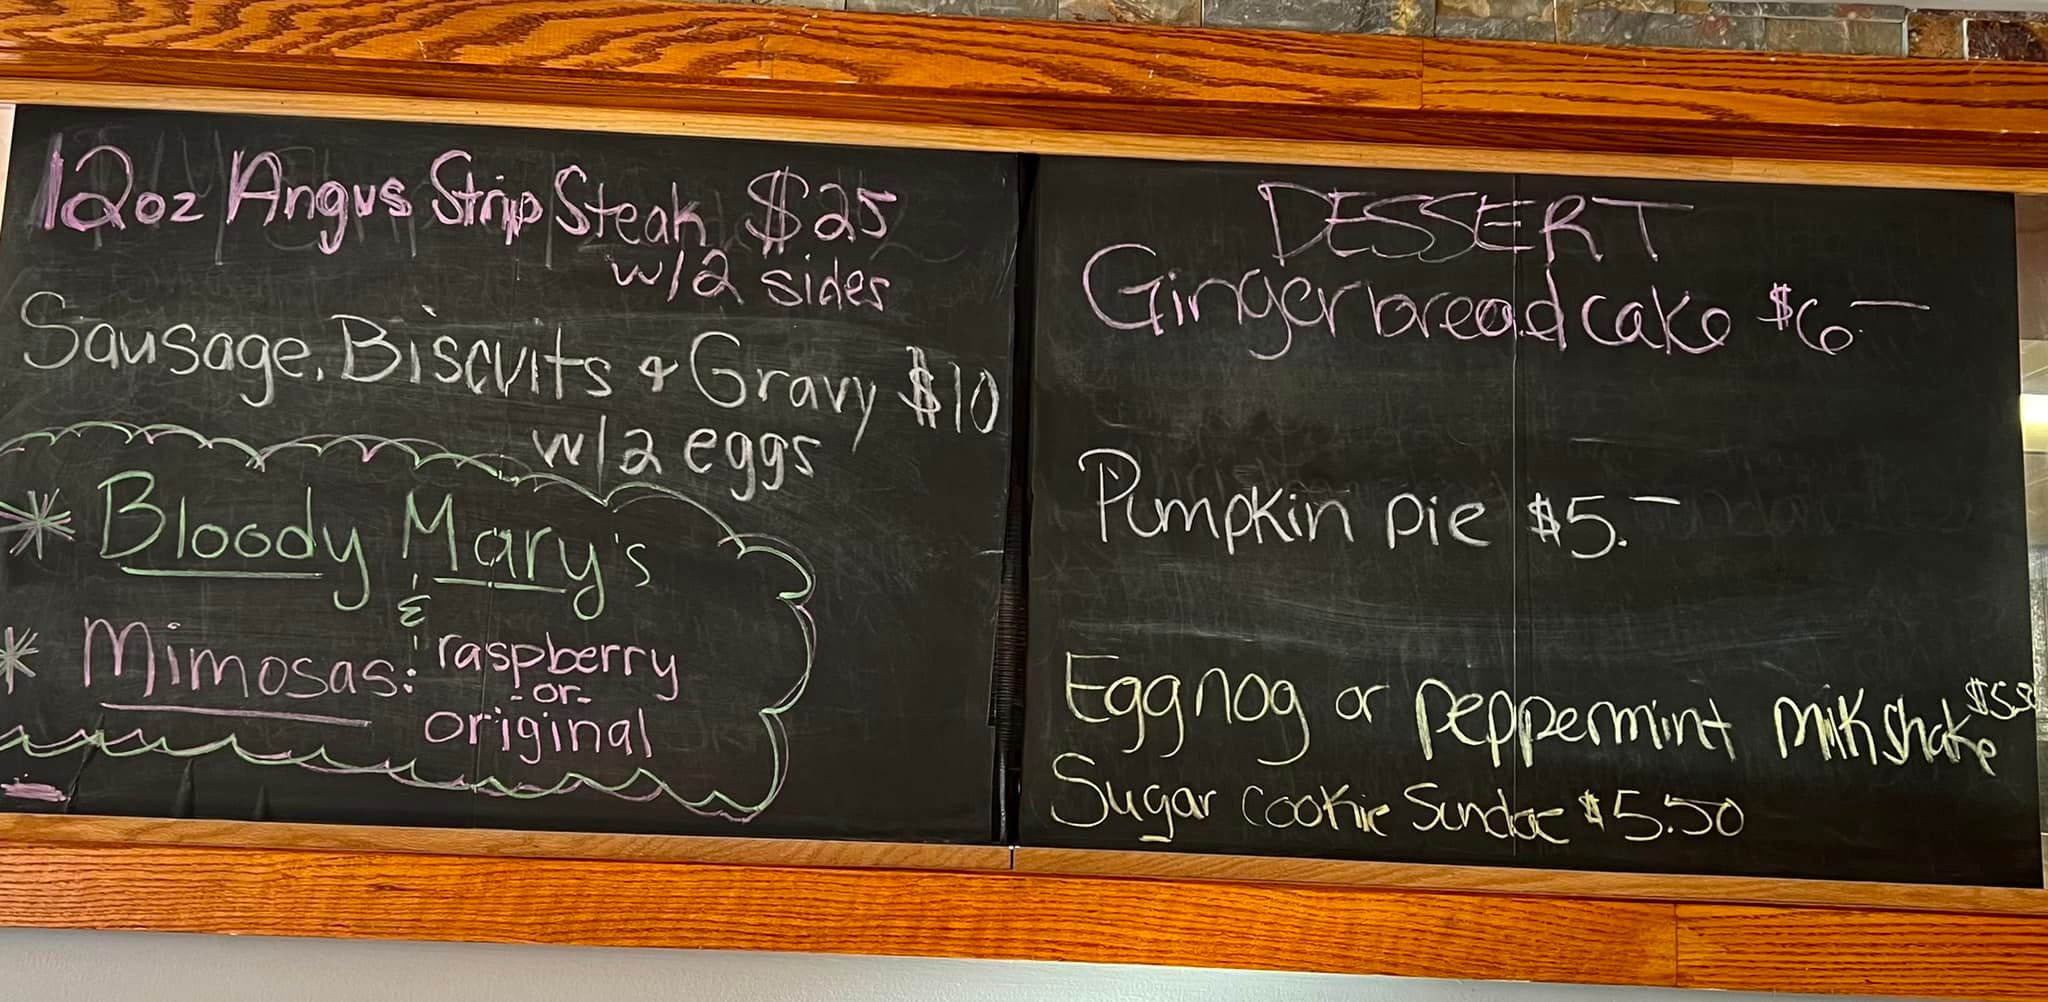 12oz Angus Strip Steak $25
w/2 sides
Sausage, Biscuits & Gravy $10
w/2 eggs
* Bloody Mary's
&
* Mimosas: raspberry
-or-
original
DESSERT
Gingerbread cake $6.—
Pumpkin pie $5.—
Eggnog or peppermint milkshake
Sugar cookie Sundae $5.50